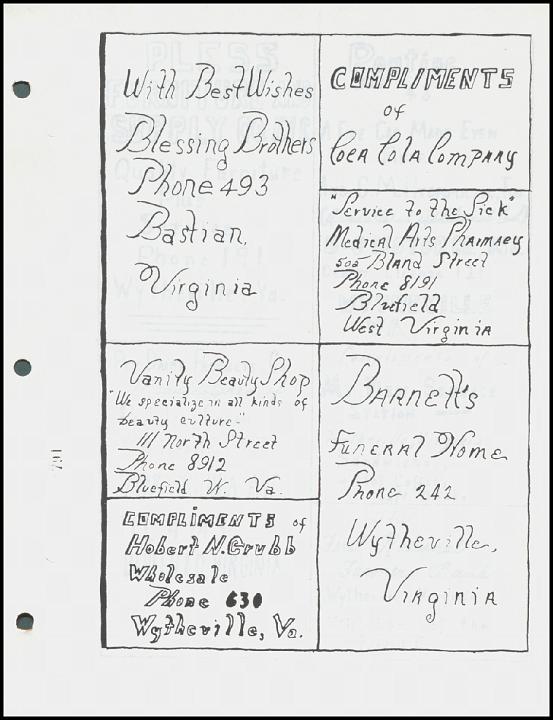 With Best Wishes
Blessing Brothers
Phone 493
Bastian,
Virginia
COMPLIMENTS
of
Coca Cola Company
"Service to the Sick"
Medical Arts Pharmacy
505 Bland Street
Phone 8191
Bluefield
West Virginia
Vanity Beauty Shop
"We specialize in all kinds of
beauty culture-"
111 North Street
Phone 8912
Bluefield W. Va.
Barnett's
Funeral Home
Phone 242
Wytheville,
Virginia
COMPLIMENTS of
Hobert N. Grubb
Wholesale
Phone 630
Wytheville, Va.